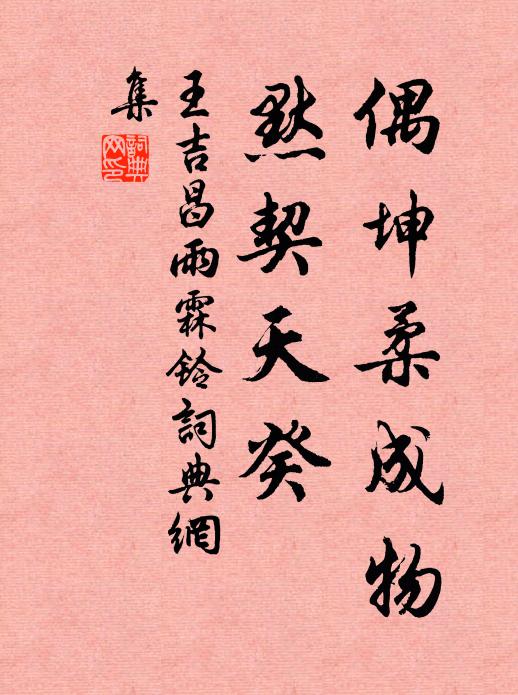 偶坤柔成物
默契天癸
王吉昌雨霖鈴詞典網
集
詞典
网印